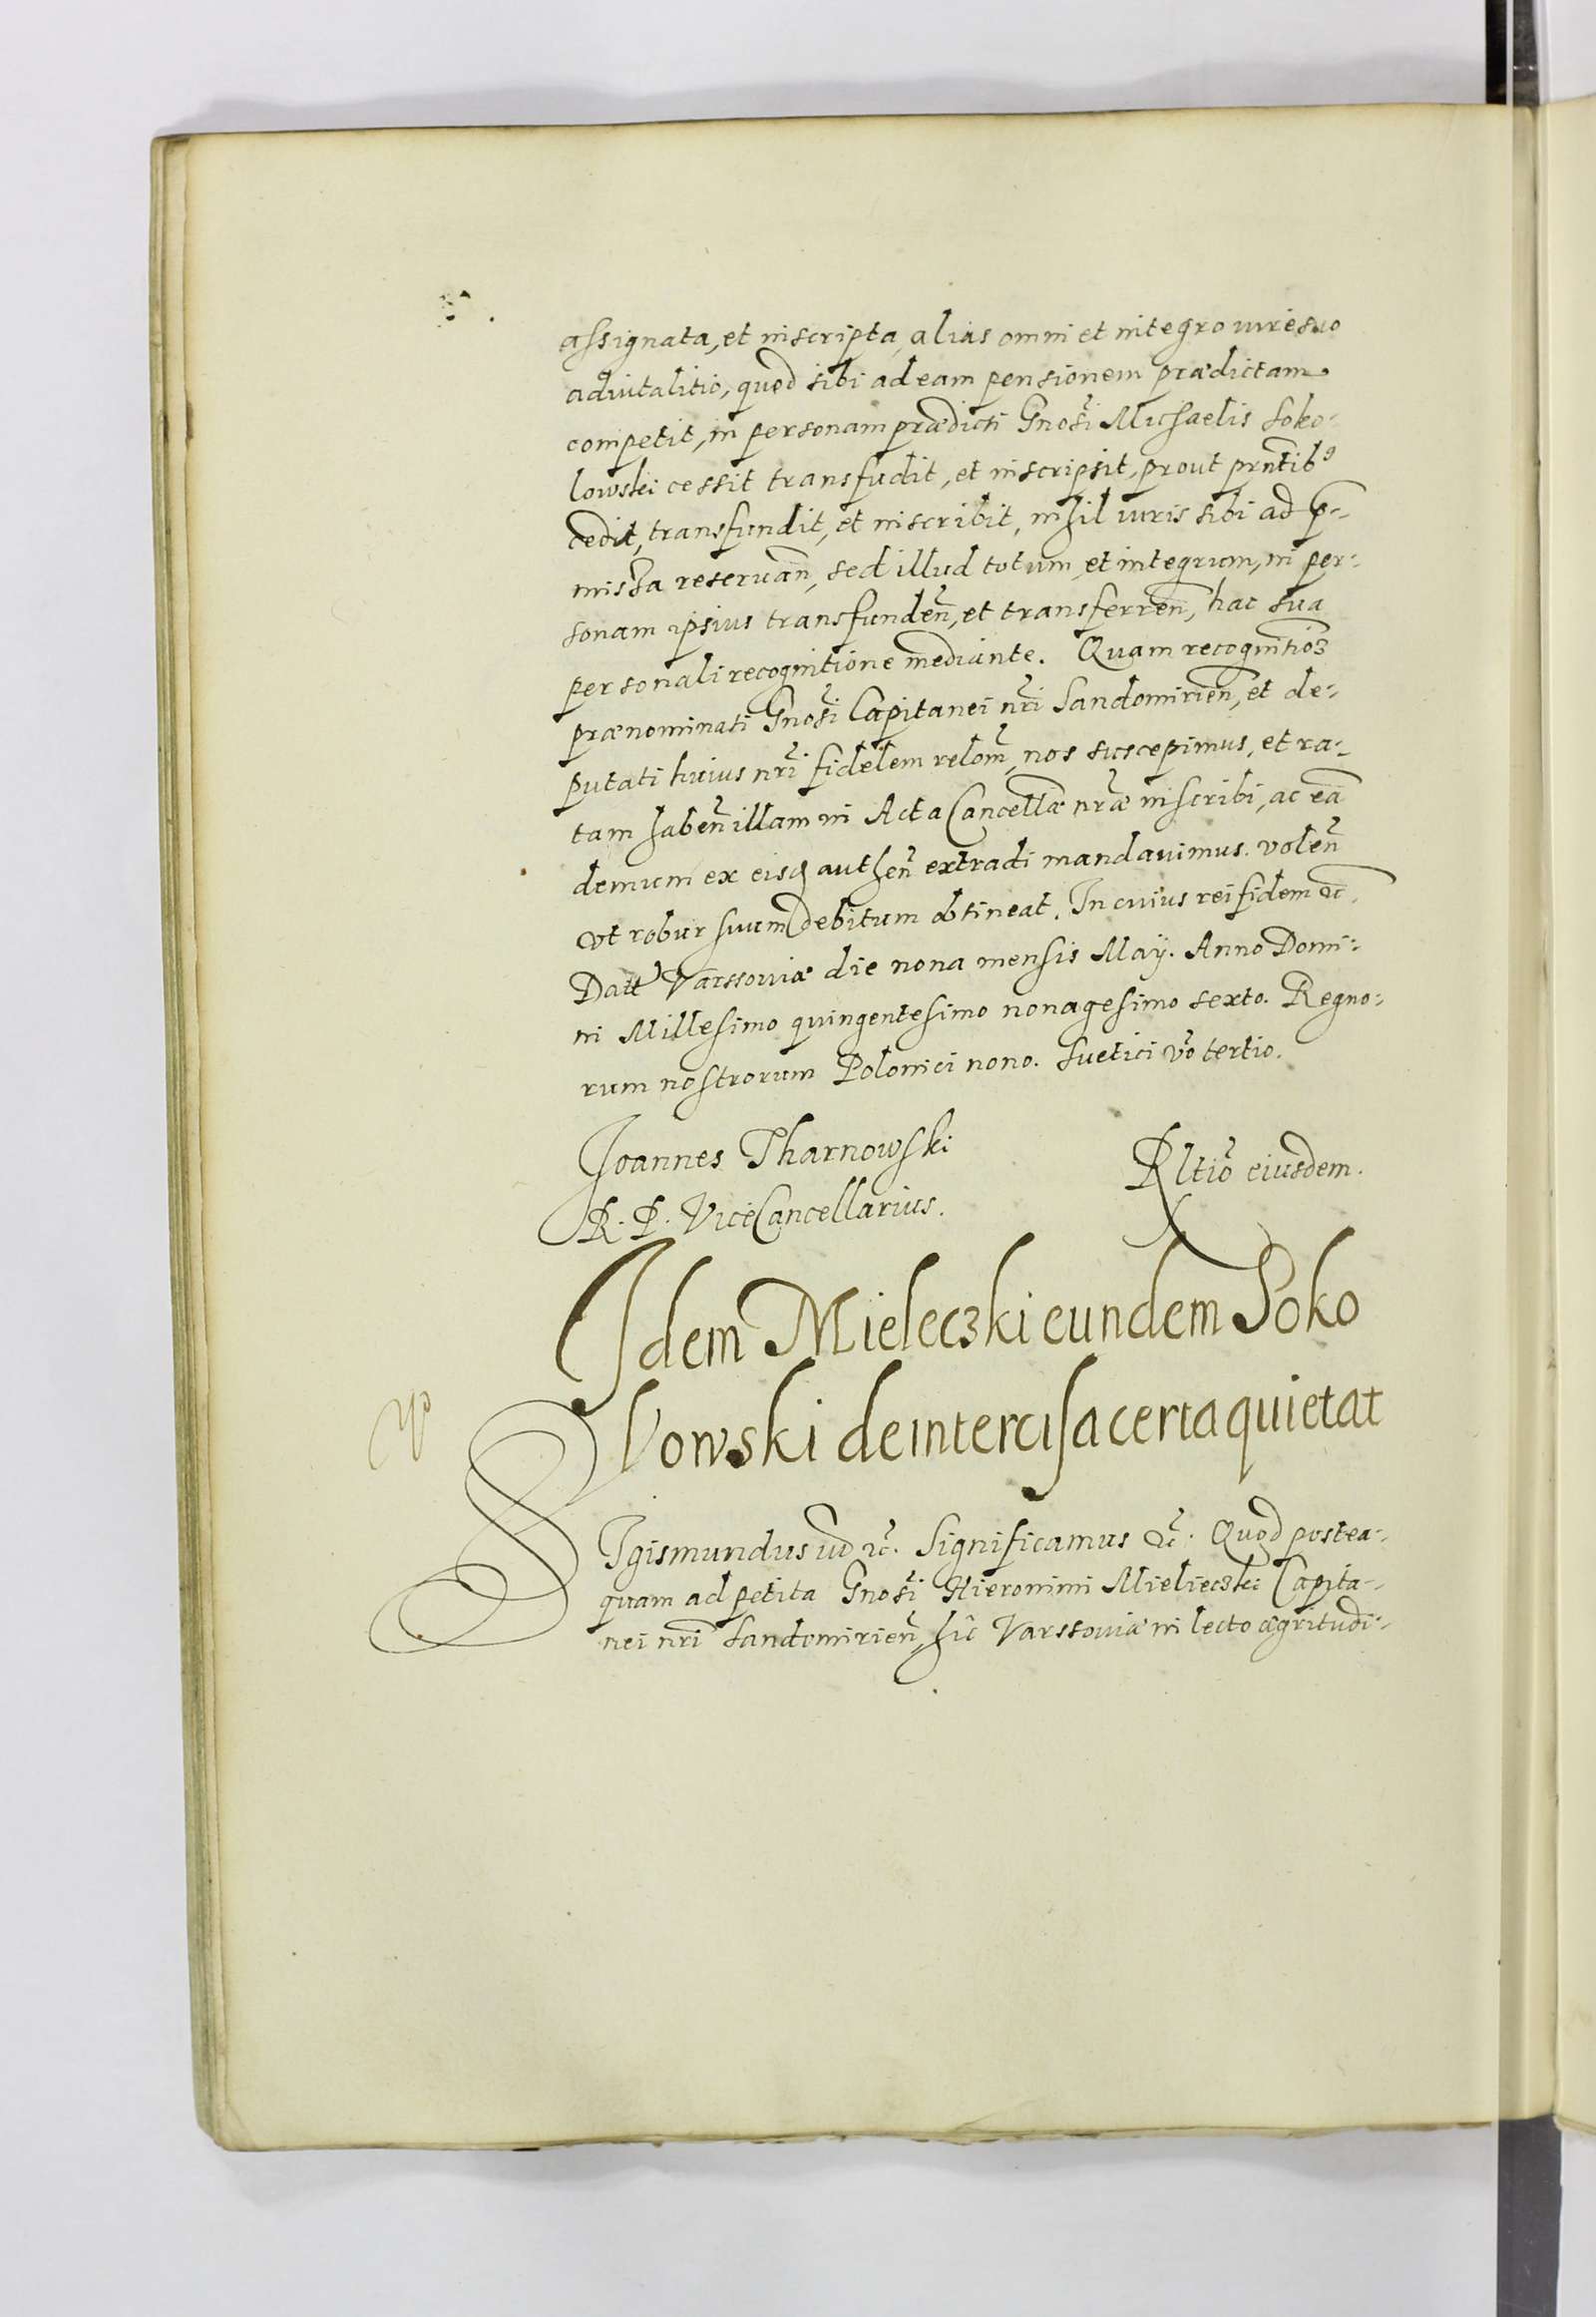 assignata, et inscripta, alias omni et integro iure suo
aduitalitio, quod sibi ad eam pensionem prædictam
competit, in personam prædicti Gnosi Michaelis Soko-
lowski cessit transfudit, et inscripsit, prout prntibꝰ
cedit, transfundit, et inscribit, nihil iuris sibi ad p̄-
missa reseruan̄, sed illud totum, et integrum, in per-
sonam ipsius transfunden̄, et transferren̄, hac sua
personali recognitione mediante. Quam recognitiōē
prænominati Gnosi Capitanei nr̄i Sandomirien̄, et de-
putati huius nr̄i fidelem relom̄, nos suscepimus, et ra-
tam haben̄ illam in Acta Cancellæ nr̄æ inscribi, ac eā
demum ex eisq̃ authen̄ extradi mandauimus. volen̄
vt robur suum debitum obtineat. In cuius rei fidem &c̃.
Datt Varssouiæ die nona mensis Maÿ. Anno Domi-
ni Millesimo quingentesimo nonagesimo sexto. Regno-
rum nostrorum Polonici nono. Suetici v̄o tertio.
Joannes Tharnowski
R. P. ViceCancellarius.
Rltio eiusdem.
Idem Mieleczki eundem Soko
lowski de intercisa certa quietat
SIgismundus ut &c̃. Significamus &c̃. Quod postea-
quam ad petita Gnosi Hieronimi Mielieczki Capita-
nei nr̄i Sandomirien̄, hic Varssouiæ in lecto ægritudi-